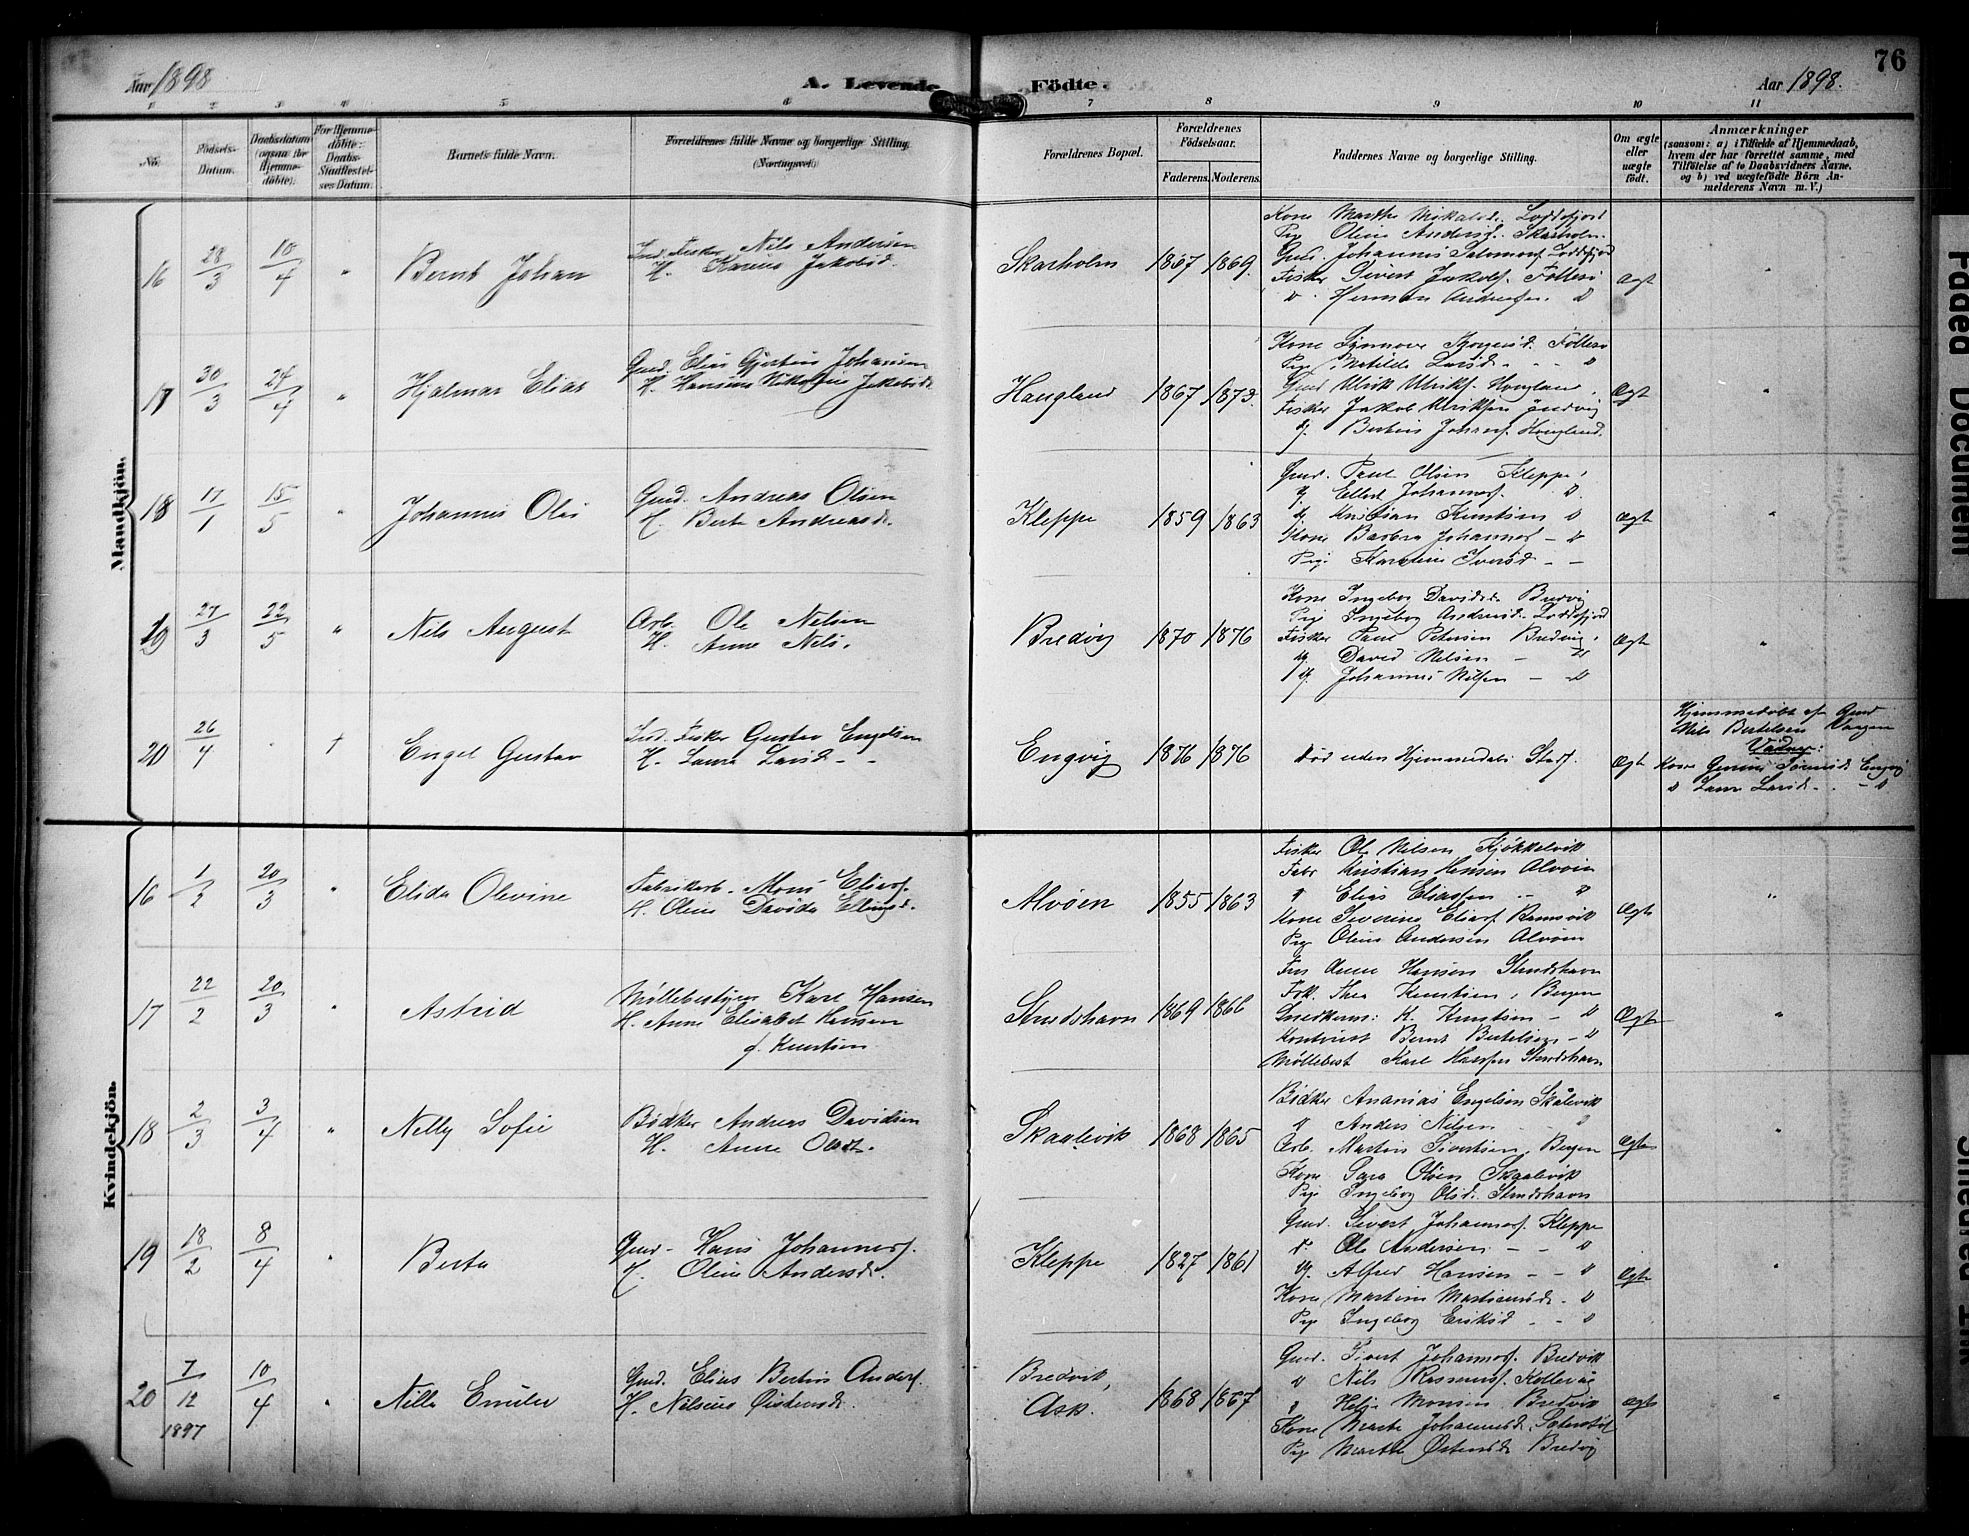 76
Aar 1898
A. Levende Födte.
Aar 1898.
1 2 3 4 5 6 7 8 9 10 11
No.
Födsels-Datum.
Daabsdatum (ogsaa for Hjemme-döbte).
For Hjemme-döbte: Daabs-Stadfestel-ses Datum.
Barnets fulde Navn.
Forældrenes fulde Navne og borgerlige Stilling. (Næringsvei.)
Forældrenes Bopæl.
Forældrenes Födselsaar.
Faderens. Moderens.
Faddernes Navne og borgerlige Stilling.
Om ægte eller uægte födt.
Anmærkninger
(saasom: a) i Tilfælde af Hjemmedaab,
hvem der har forrettet samme, med
Tilföielse af to Daabsvidners Navne,
og b) ved uægtefödte Börn An-
melderens Navn m. V.)
Mandkjön.
16 28/3 10/4 " Bernt Johan
Ind. Fisker Nils Andersen
H. Karine Jakobsd.
Skarholm 1867 1869
Kone Marthe Mikalsd. Loddefjord
Pig Oline Andersd. Skarholm
Gud. Johannes Salomons. Loddefjord
Fisker Sivert Jakobs. Follesø
" Herman Andreas. "
Ægt "
17 30/3 24/4 " Hjalmar Elias
Gmd. Elias Gjertsius Johansen
H. Hansine Nikoline Jakobsd.
Haugland 1867 1873.
Kone Synnove Follesø
Pige Matilde Larsd. - "
Gmd Ulrik Ulriks. Haugland
Fisker Jakob Ulriksen
" Bertius Johans. Haugland.
Ægt "
18 17/1 15/5 " Johannes Olai
Gmd. Andreas Olsen
H. Berte Andreasd.
Kleppe 1859 1863
Gmd. Paul Olsen Kleppe
" Ellert Johannes. "
" Kristian Knutsen "
Kone Barbra Johannes - "
Pig. Karoline Iversd - -
Ægt "
19 27/3 22/5 " Nils August
Arb. Ole Nelsen
H. Anne Nils.
Bredvig 1870 1876
Kone Ingeborg Davidsd. Bredvig
Pig Ingeborg Andersd. Loddefjord
Fisker Paul Petersen Bredvig
" David Nilsen - "
" Johannes Nilsen - "
Ægt "
20 26/4 " † Engel Gustav
Ind. Fisker Gustav Engelsen
H. Laura Larsd. - -
Engvig 1876 1876
Død uden Hjemmedaabs Stadf.
Ægt
Hjemmedøbt af Gmd
Nils Bertelsen
Vidner:
Kone Engvig
" Laura Larsd. - - "
Kvindekjön.
16 1/2 20/3 " Elida Olevine
Fabrikarb. Mons Elias.
H. Oline Davida Ellingsd.
Alvøen 1855 1863
Fisker Ole Nilsen Kjøkkelvik
Fabr Kristian Hansen Alvøen
" Elias Eliassen - "
Kone Severine Elias. Ramsvik
Pig Oline Andersen Alvøen
Ægt "
17 22/2 20/3 " Astrid
Møllebestyrer Karl Hansen
H. Anne Elisabet Hansen
f. Knutsen
Strudshavn 1869 1866
Fru Anne Hansen Strudshavn
Frk. Thea Knutsen, Bergen
Snedkerm: K. Knutsen - "
Kontorist Bernt Bertelsen - "
Møllebest Karl Hansen Strudshavn
Ægt "
18 2/3 3/4 " Nelly Sofie
Bødker Andreas Davidsen
H. Anne Olsdt.
Skaalevik 1868 1865
Bødker Ananias Engelsen Skålevik
" Anders Nilsen - "
Arb. Martin Sivertsen, Bergen
Kone Sara Olsen Skaalevik
Pige Ingeborg Olsd. Strudshavn
Ægt "
19 18/2 8/4 " Berta
Gmd - Hans Johannes.
H. Oline Andersd.
Kleppe 1827 1861
Gmd. Sivert Johannes. Kleppe
" Ole Andersen - - "
" Alfred Hansen - - "
Kone Martine "
Pige Ingeborg Eriksd - - "
Ægt "
20 7/12 1897 10/4 " Nilla Emilie
Gmd. Elias Bertin Anders.
H. Nilsine Øistensd.
Bredvik, Ask. 1868 1867
Gmd. Sivert Johannes. Bredvik
" Nils Rasmus. Kollevåg
" Helje Monsen Bredvik
Kone Marte Johannesd.
Pige Marthe Østensd. Bredvig
Ægt "
Faded Document
Smeared Ink